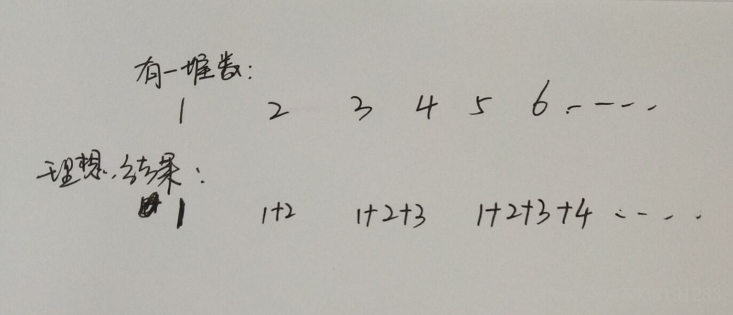 有一堆数:
1 2 3 4 5 6 . - - - .
理想结果:
1 1+2 1+2+3 1+2+3+4 . . - - .